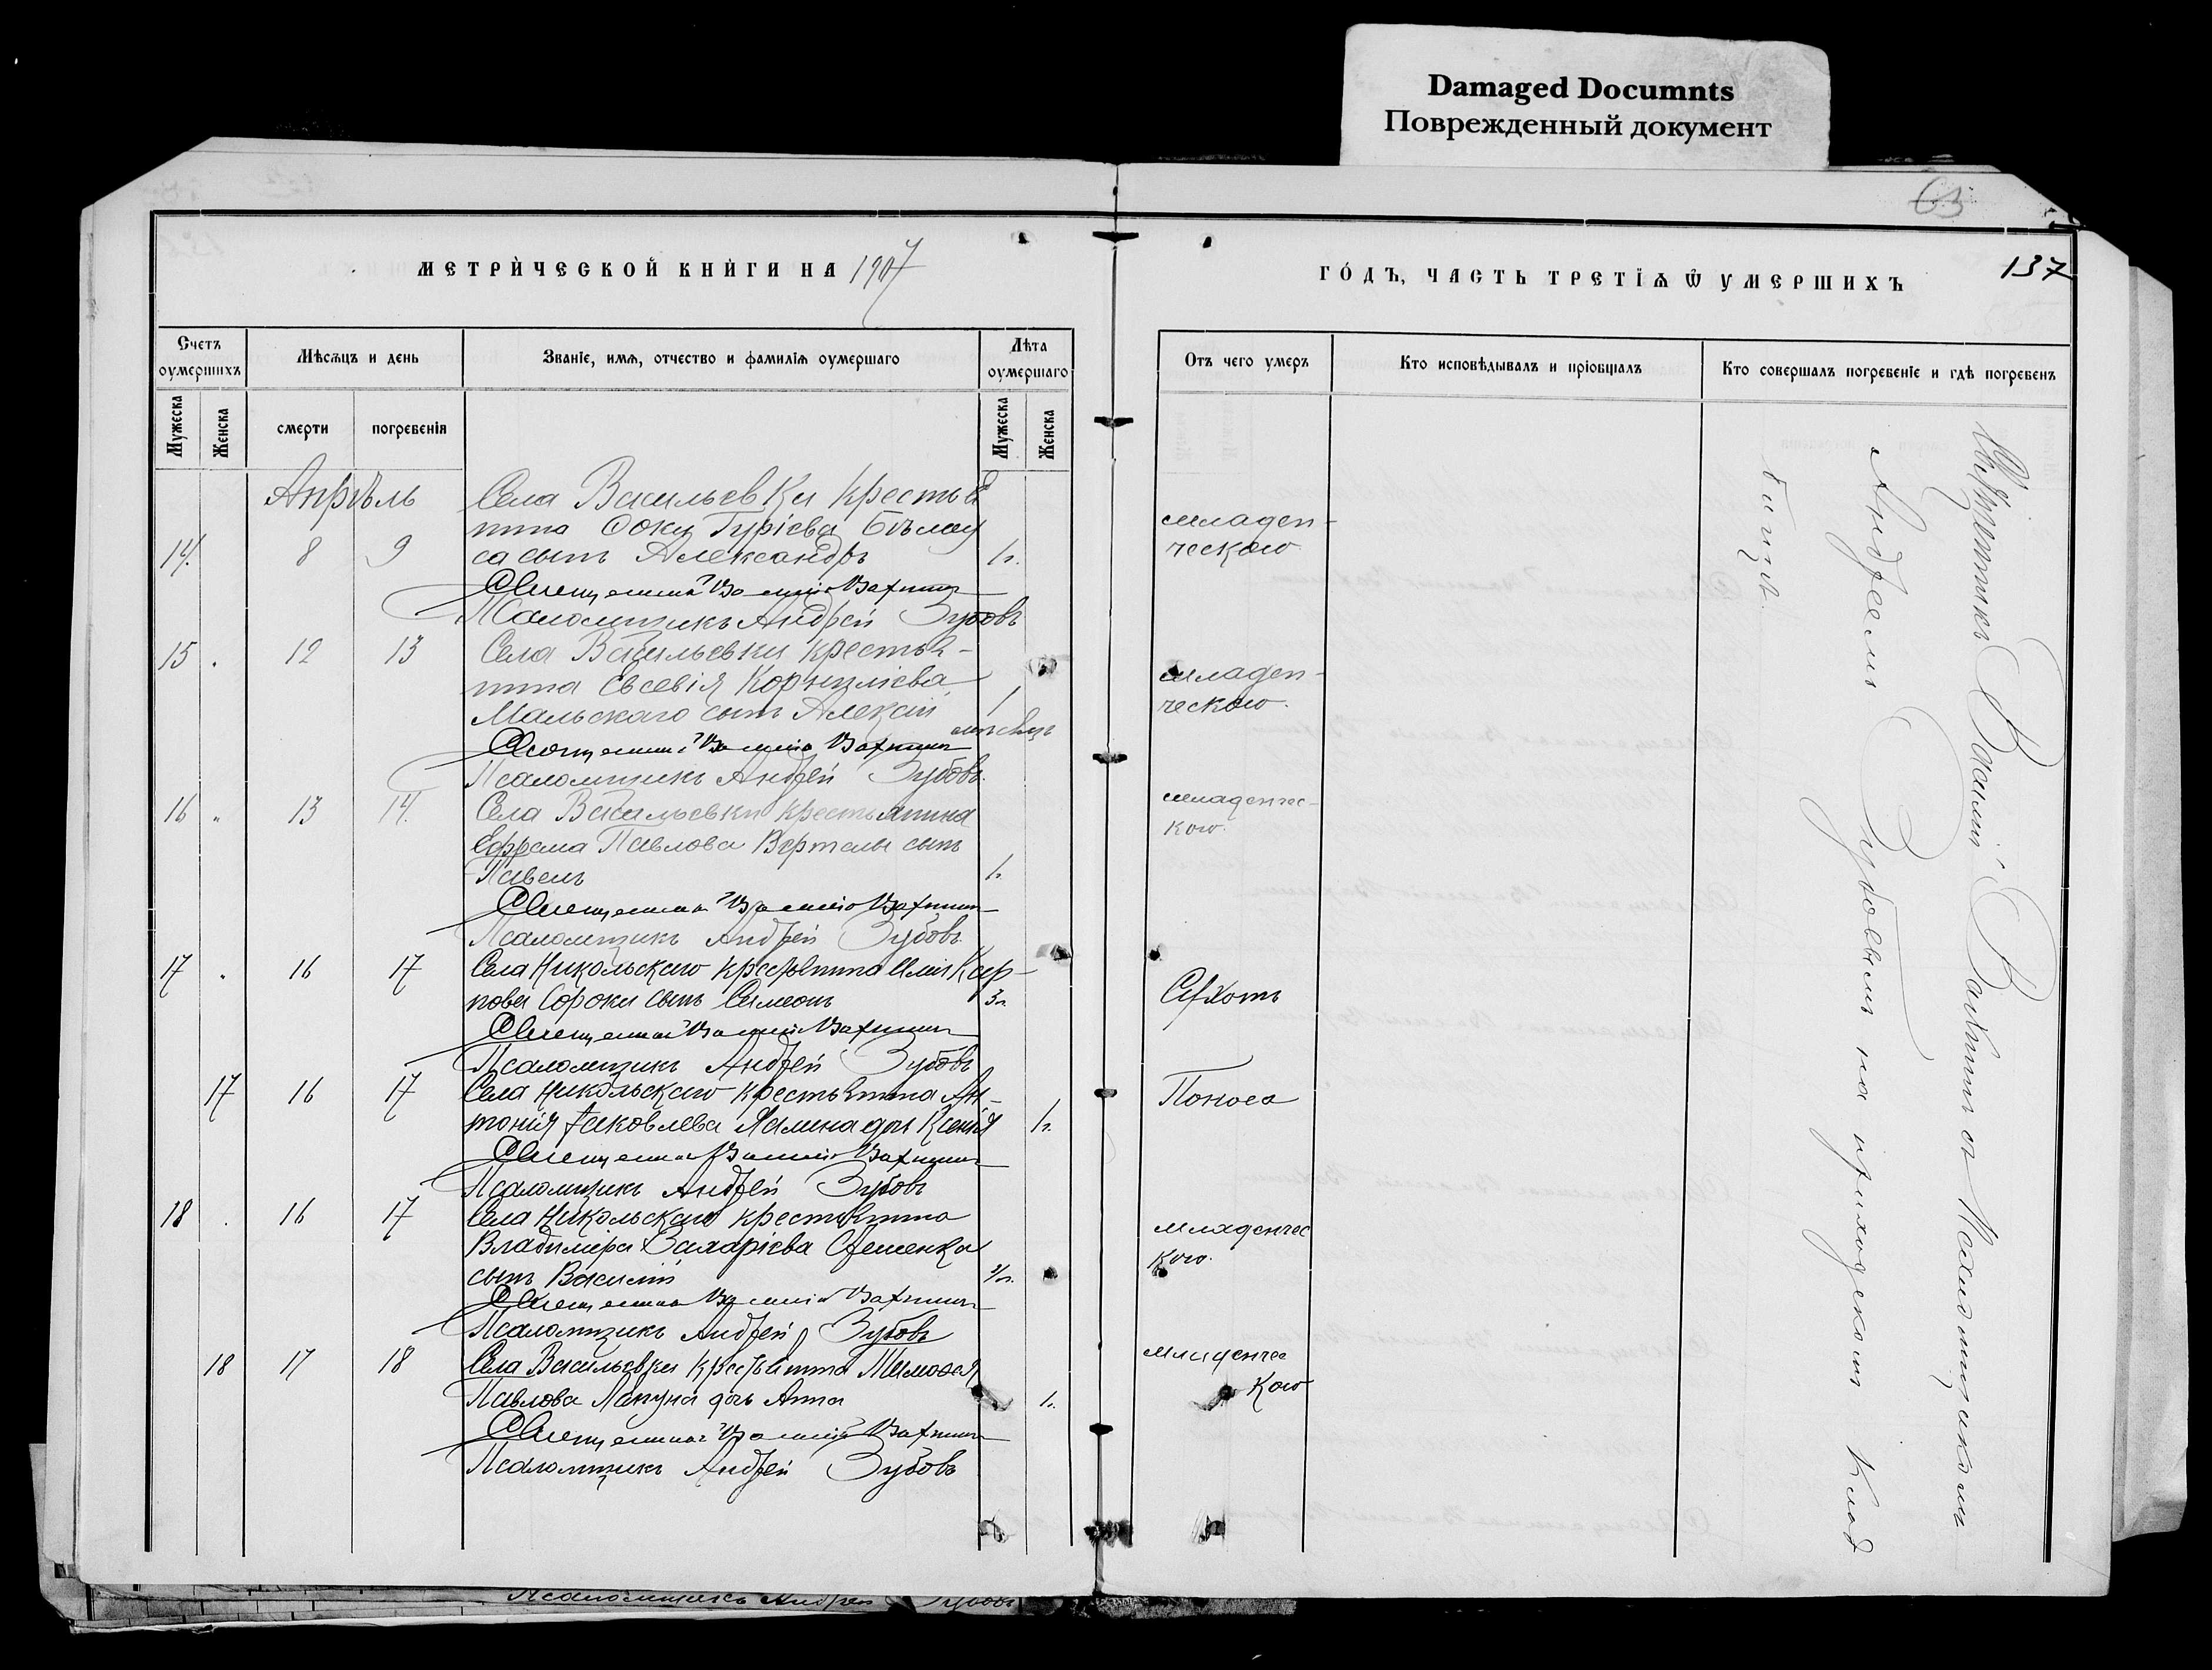 Damaged Documnts
Поврежденный документ
63
137
МЕТРИЧЕСКОЙ КНИГИ НА 1907
ГОДЪ, ЧАСТЬ ТРЕТІѦ Ѿ УМЕРШИХЪ
Счетъ оумершихъ
Мѣсѧцъ и день
Званіе, имѧ, отчество и фамиліѧ оумершаго
Лѣта оумершаго
Отъ чего умеръ
Кто исповѣдывалъ и пріобщалъ
Кто совершалъ погребеніе и гдѣ погребенъ
Мужеска
Женска
смерти
погребенія
Мужеска
Женска
Апрѣль
Села Васильевки крестья
14. 8 9
нина Фоки Гуріева Бѣлоу
са сынъ Александръ 1 г.
младен-
ческаго
Священникъ Василій Вахнинъ
Псаломщикъ Андрей Зубовъ
15 12 13
Села Васильевки крестья-
нина Евсевія Корнилієва
Мальскаго сынъ Алексій
1 мѣсяцъ
младен-
ческаго.
Священникъ Василій Вахнинъ
Псаломщикъ Андрей Зубовъ.
16 " 13 14.
Села Васильевки крестьянина
Ефрема Павлова Верталы сынъ
Павелъ 1 г.
младенчес-
кого.
Священникъ Василій Вахнинъ
Псаломщикъ Андрей Зубовъ
17 16 17
Села Никольскаго крестьянина Иліи Кар-
пова Сороки сынъ Симеонъ 3 г.
Священникъ Василій Вахнинъ
Псаломщикъ Андрей Зубовъ
17 16 17
Села Никольскаго крестьянина Ан-
тонія Іаковлева дочь Ксенія 1 г.
Поноса
Священникъ Василій Вахнинъ
Псаломщикъ Андрей Зубовъ
18 16 17
Села Никольскаго крестьянина
Владиміра Захаріева
сынъ Василій
младенчес
кого.
Священникъ Василій Вахнинъ
Псаломщикъ Андрей Зубовъ
18 17 18
Села Васильевки крестьянина Тимофея
Павлова Лапуна дочь Анна 1 г.
младенчес
кого
Священникъ Василій Вахнинъ
Псаломщикъ Андрей Зубовъ
Священникъ Василій Вахнинъ съ Псаломщикомъ
Андреемъ Зубовымъ на приходскомъ клад
бищѣ.
Псаломщикъ Андрей Зубовъ